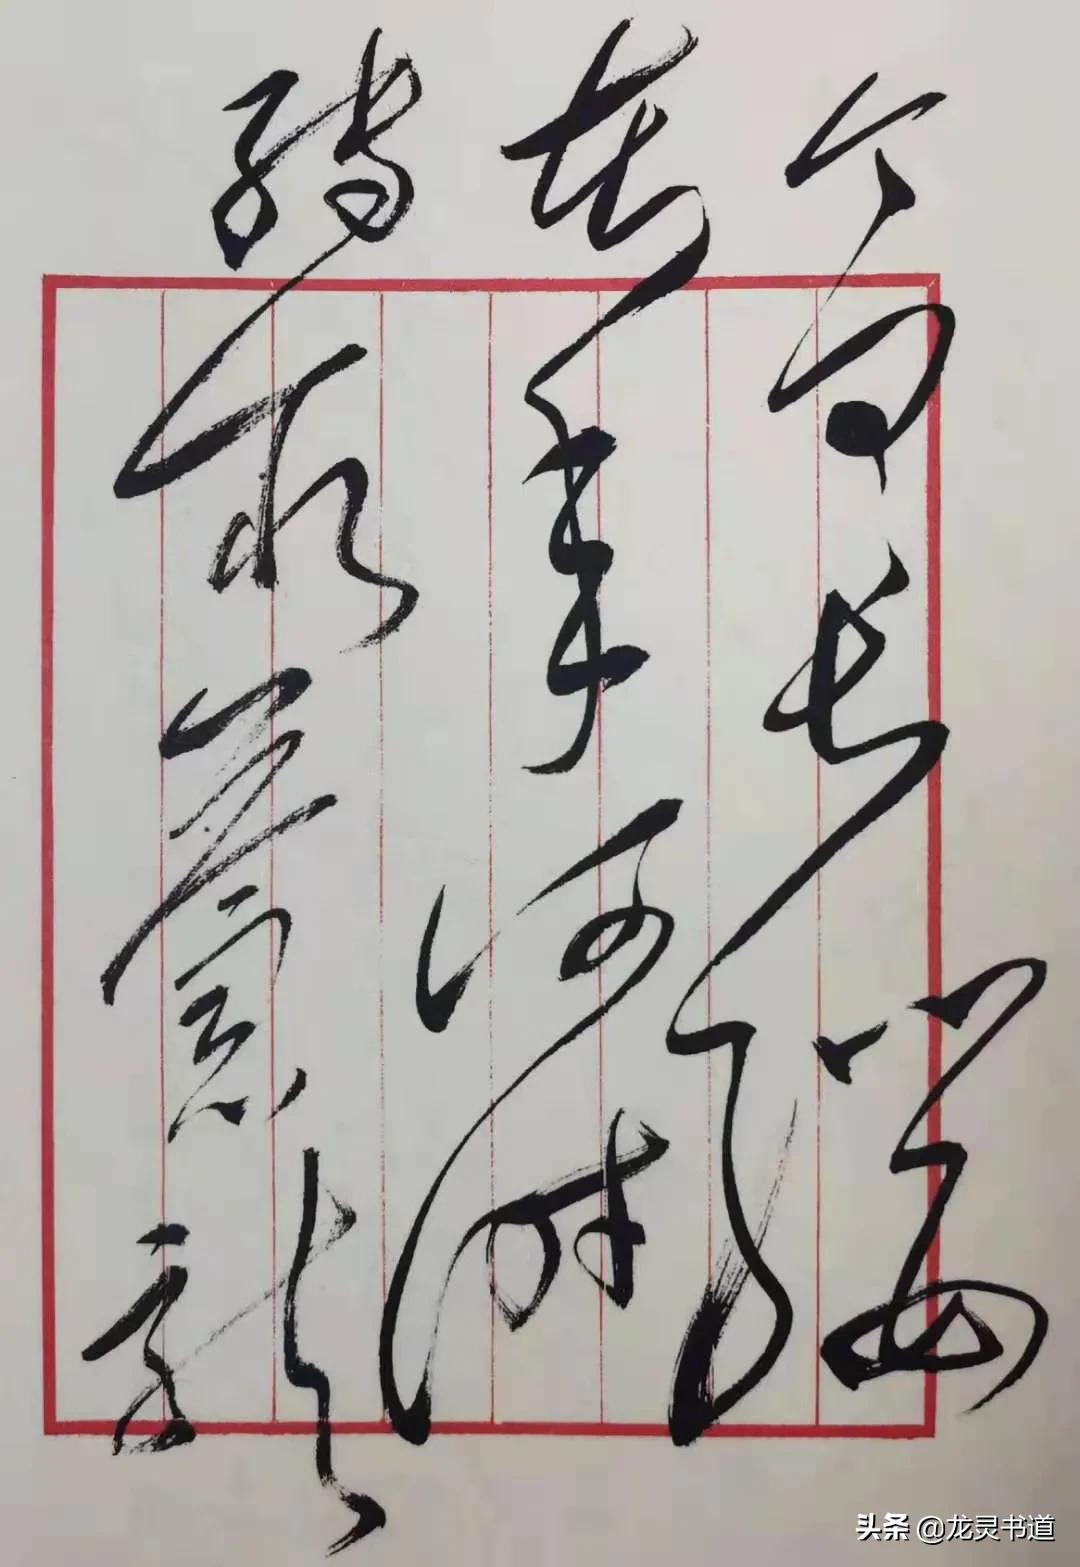 今日長纓
在手何時
縛蒼龍
头条 @龙灵书道